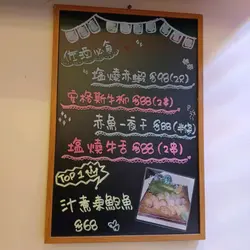 佐酒必食
塩燒赤蝦 @98(2只)
安格斯牛柳 @88(2串)
赤魚一夜干 @88
塩燒牛舌 @88(2串)
TOP 1
汁煮鮑魚
@68